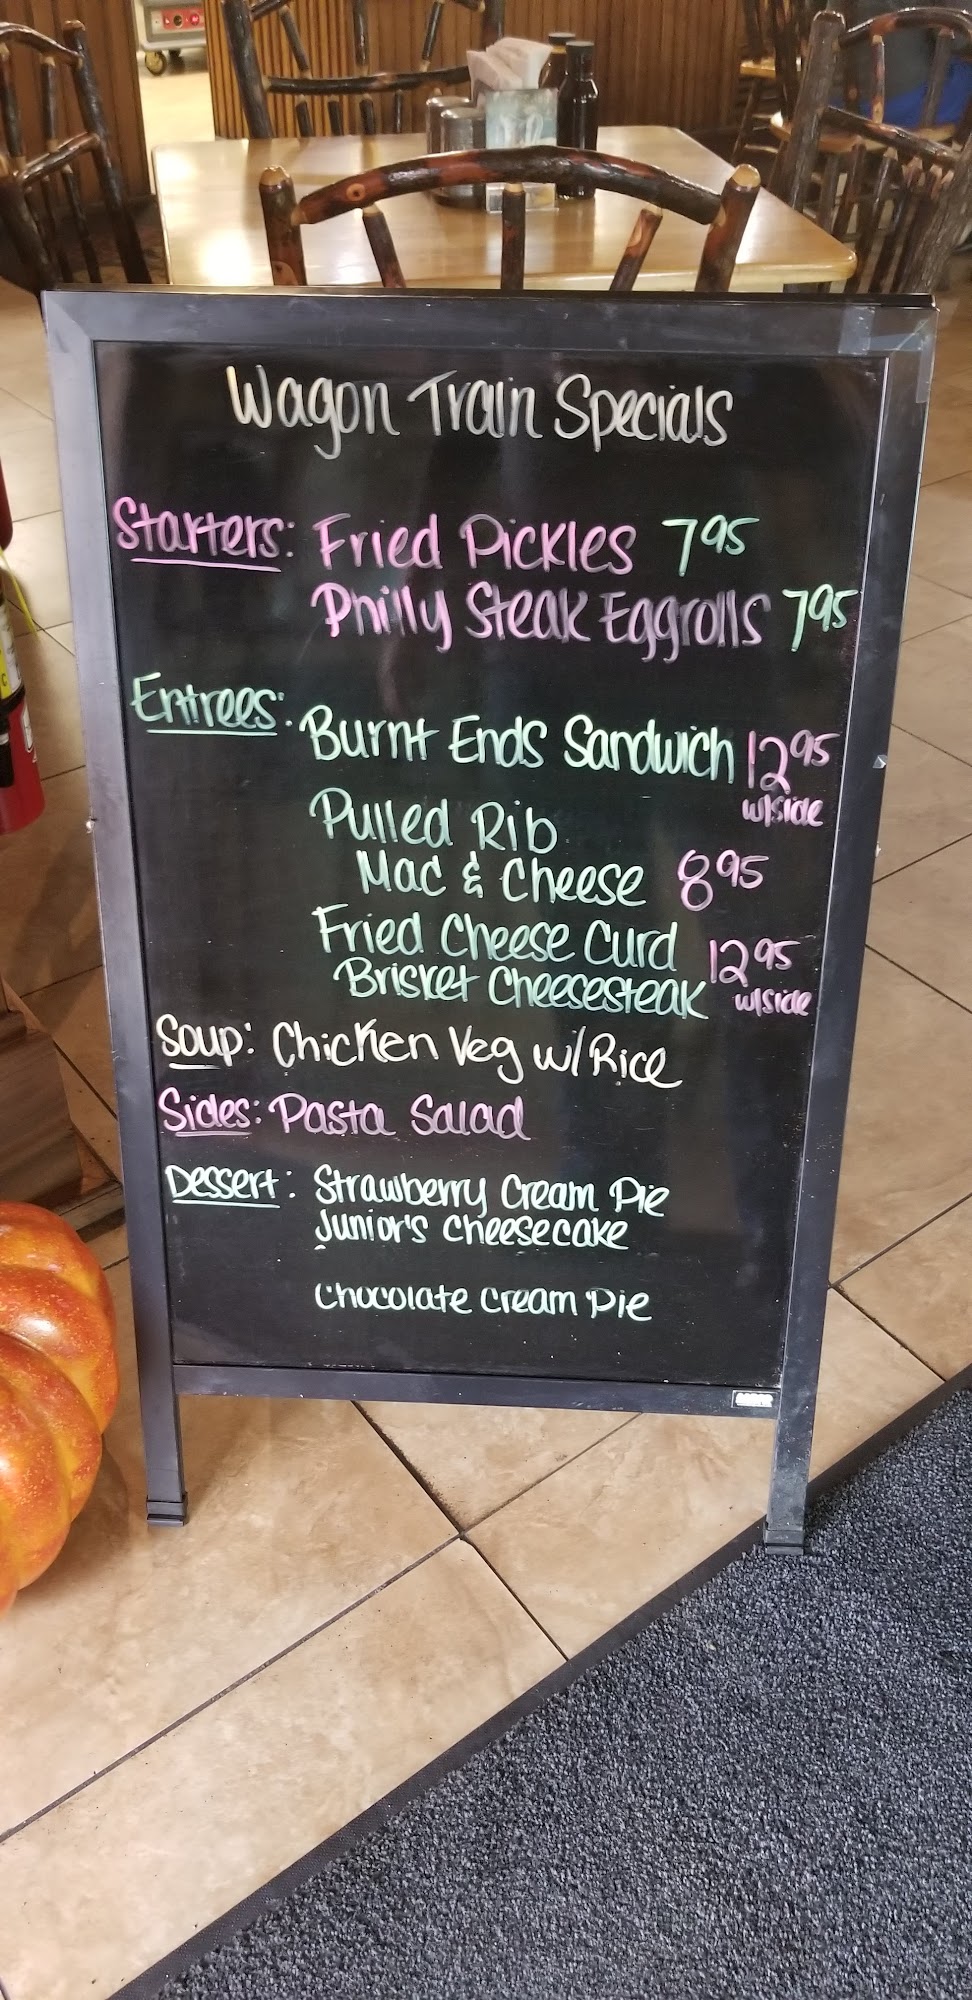 Wagon Train Specials
Starters: Fried Pickles 7.95
Philly Steak Eggrolls 7.95
Entrees: Burnt Ends Sandwich 12.95
w/side
Pulled Rib
Mac & Cheese 8.95
Fried Cheese Curd
Brisket Cheesesteak 12.95 w/side
Soup: Chicken Veg w/ Rice
Sides: Pasta Salad
Dessert: Strawberry Cream Pie
Junior's Cheesecake
Chocolate Cream Pie